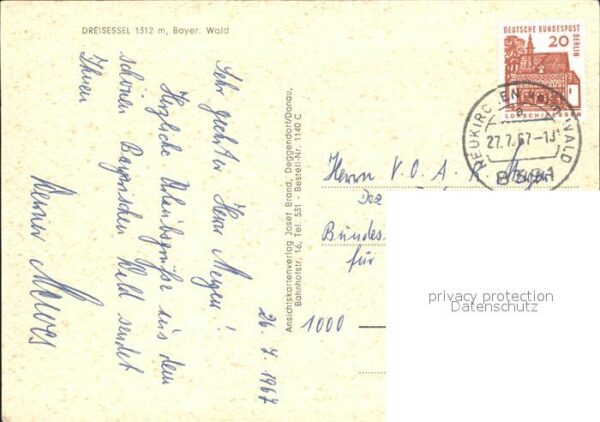 DREISESSEL 1312 m, Bayer. Wald
Sehr geehrter Herr Meyer!
Herzliche Urlaubsgrüße aus dem
schönen Bayrischen Wald sendet
Ihnen
Werner
26.7.1967
Ansichtskartenverlag Josef Brand, Deggendorf/Donau,
Bahnhofstr. 16, Tel. 531 - Bestell-Nr. 1140 C
DEUTSCHE BUNDESPOST
BERLIN
20
LORSCH/HESSEN
NEUKIRCHEN WALD
27.7.67-1
8391
Herrn V. O. A. R. Meyer
Dez
Bundes
für
1000
privacy protection
Datenschutz